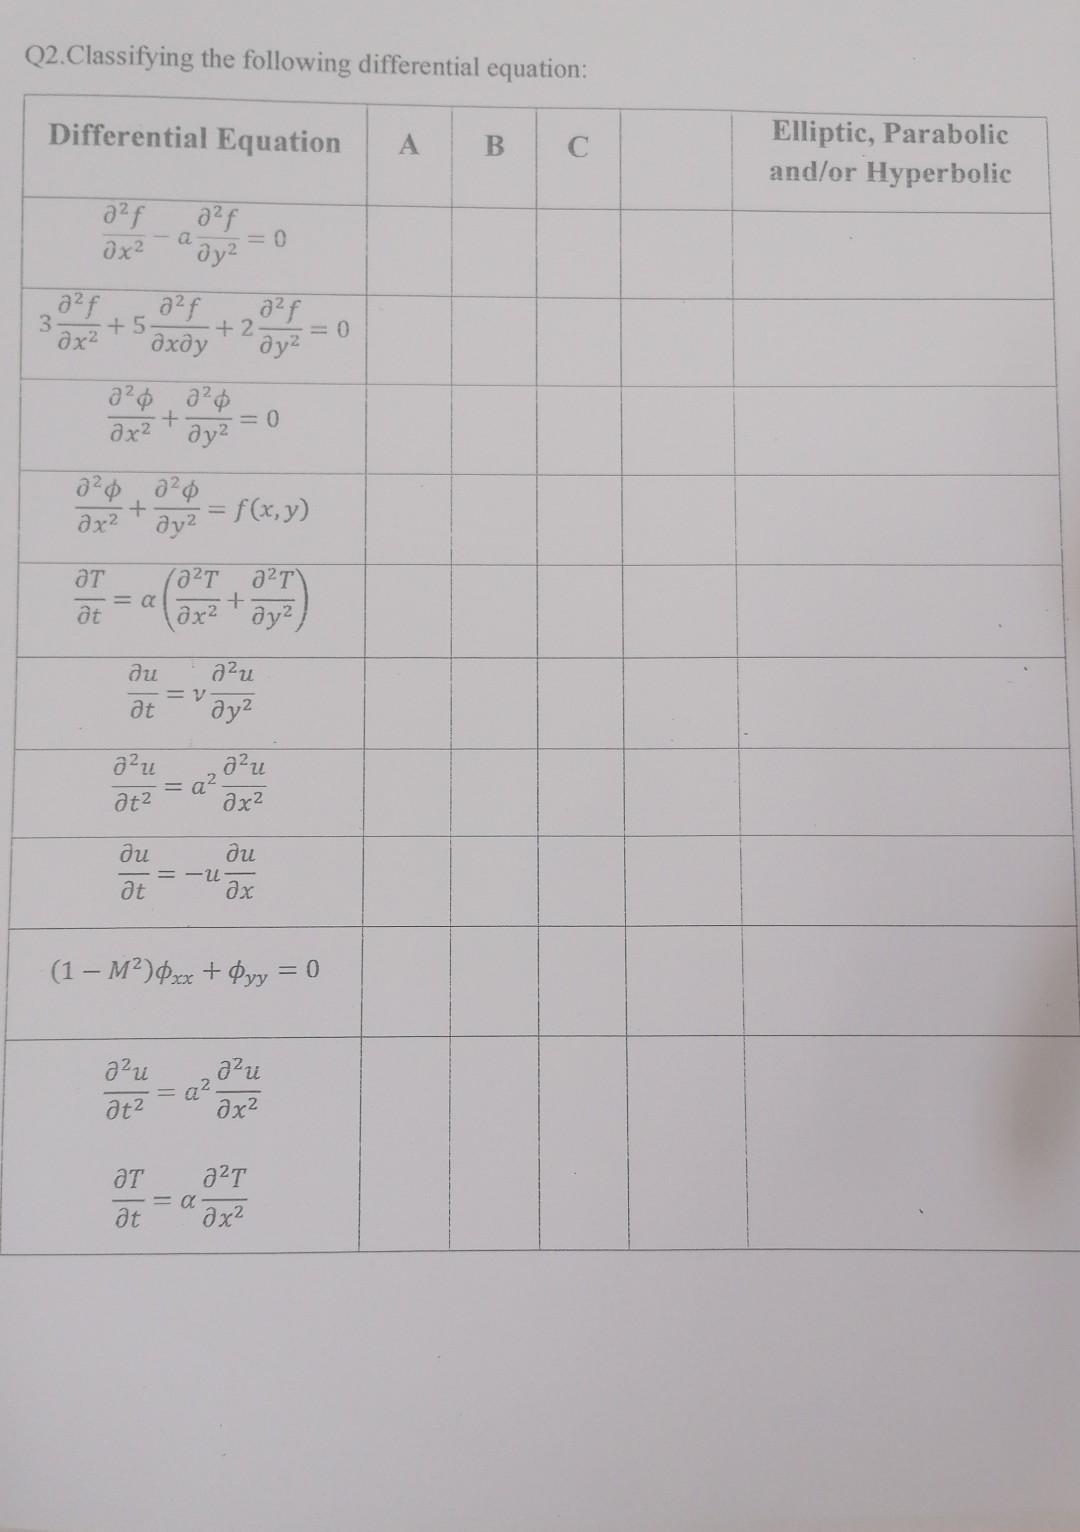 Q2.Classifying the following differential equation:
Differential Equation A B C Elliptic, Parabolic and/or Hyperbolic
∂²f/∂x² − a ∂²f/∂y² = 0
3 ∂²f/∂x² + 5 ∂²f/∂x∂y + 2 ∂²f/∂y² = 0
∂²ϕ/∂x² + ∂²ϕ/∂y² = 0
∂²ϕ/∂x² + ∂²ϕ/∂y² = f(x,y)
∂T/∂t = α(∂²T/∂x² + ∂²T/∂y²)
∂u/∂t = ν ∂²u/∂y²
∂²u/∂t² = a² ∂²u/∂x²
∂u/∂t = −u ∂u/∂x
(1 − M²)ϕxx + ϕyy = 0
∂²u/∂t² = a² ∂²u/∂x²
∂T/∂t = α ∂²T/∂x²